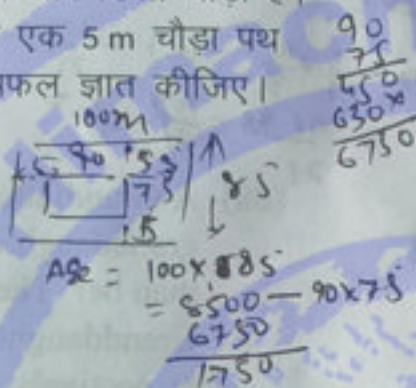 एक 5 m चौड़ा पथ
फल ज्ञात कीजिए।
90
75
450
630×
6750
100m
5 90 5
75
5
85
= 100 × 85
= 8500 - 90×75
6750
1750